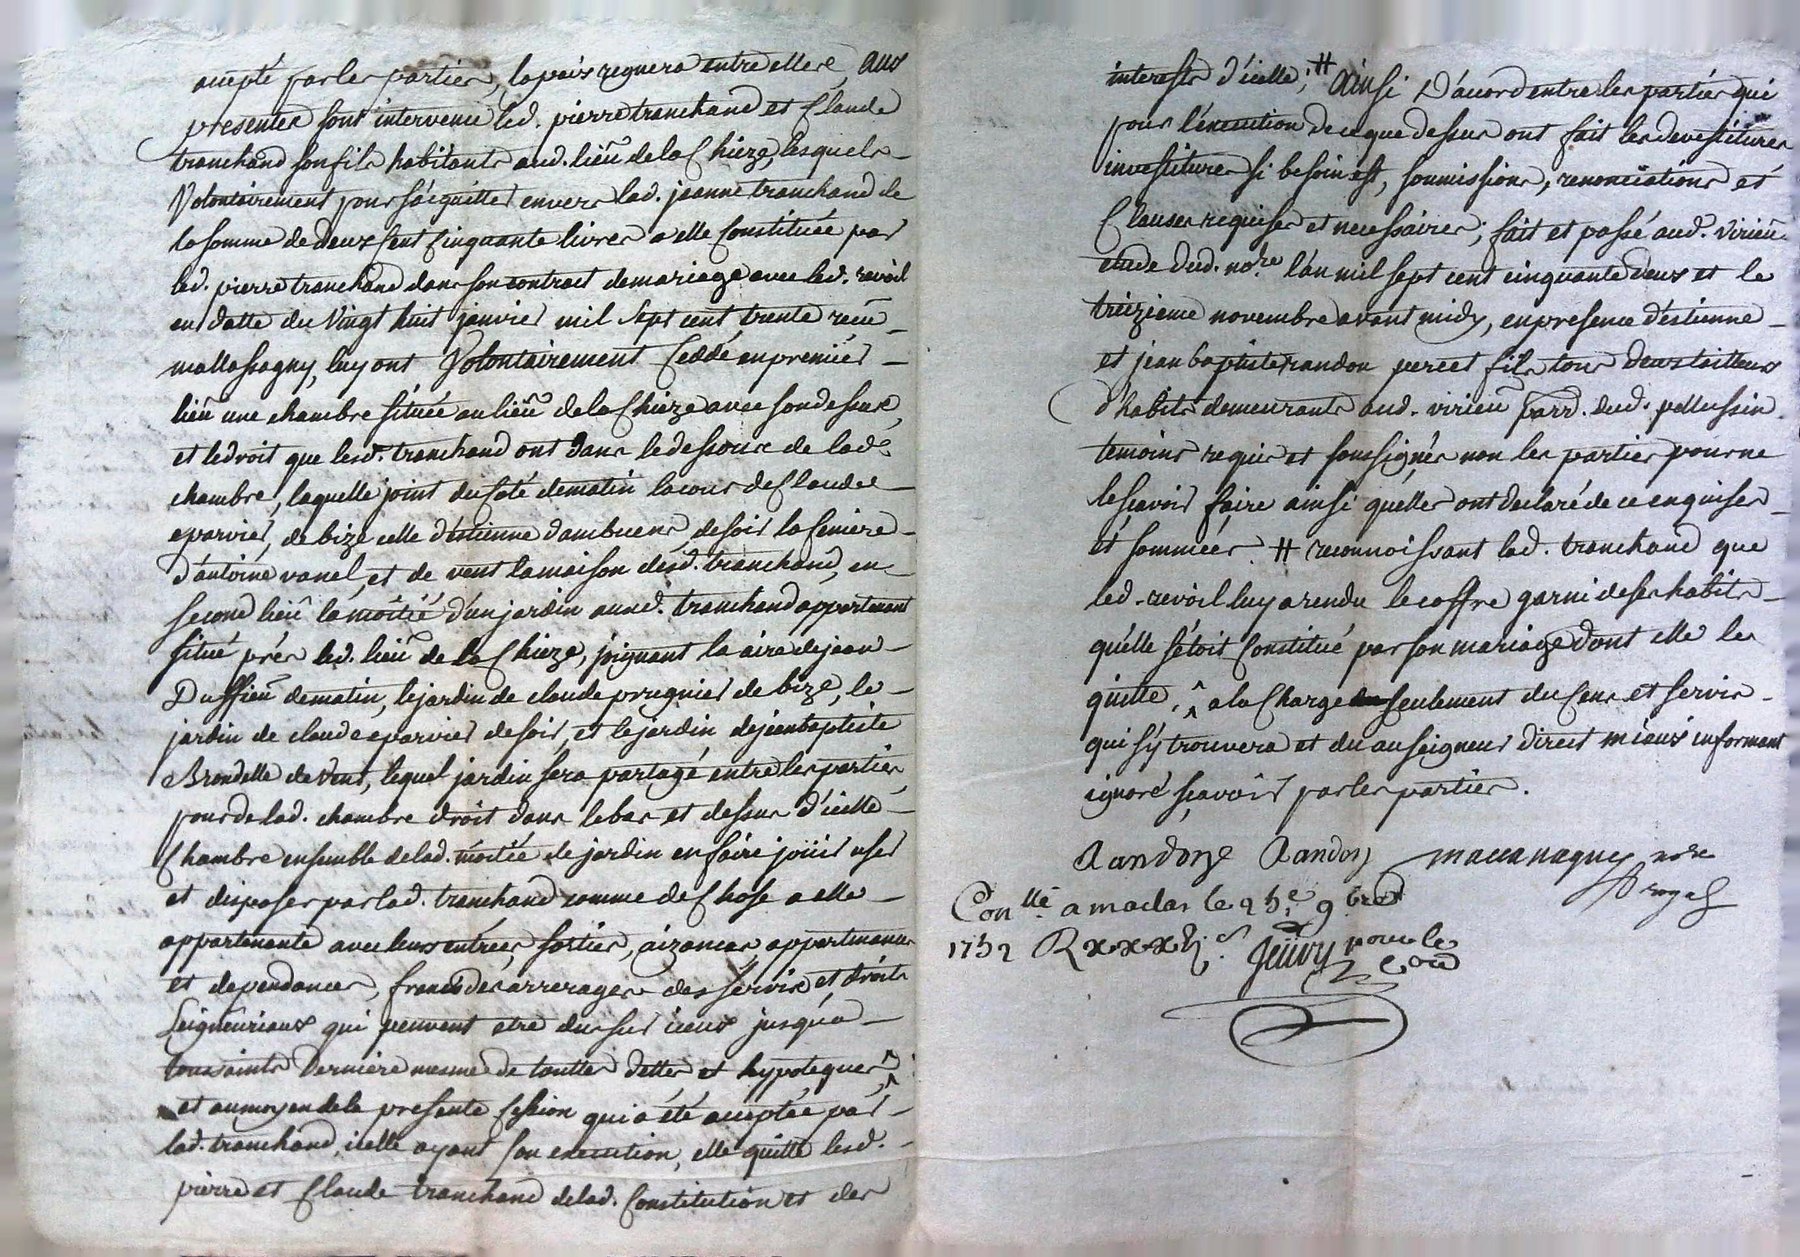 accepté par les parties, la paix regnera entre elles, aux
presentes sont intervenu led. pierre tranchand et Claude
tranchand son fils habitants aud. lieu de la Chieze, lesquels
Volontairement pour s'acquitter envers lad. jeanne tranchand de
la somme de deux Cent Cinquante livres a elle Constituée par
led. pierre tranchand dans son contract de mariage avec led. revoil
en datte du Vingt huit janvier mil sept cent trente receu
mallassagny, luy ont Volontairement Ceddé en premier
lieu une chambre située au lieu de la Chieze avec son dessus,
et le droit que lesd. tranchand ont dans le dessous de lad.
chambre, laquelle joint du Coté de matin la cour de Claude
eparvier, de bize celle d'estienne dambuens, de soir la feniere
d'antoine vanel, et de vent la maison desd. tranchand, en
second lieu la moitié d'un jardin auxd. tranchand appartenant
situé prés led. lieu de la Chieze, joignant la aire de jean
Duffieu de matin, le jardin de claude prugnier de bize, le
jardin de claude eparvier de soir, et le jardin de jean baptiste
Brondelle de vent, lequel jardin sera partagé entre les parties,
pour de lad. chambre droit dans le bas et dessus d'icelle
Chambre ensemble de lad. moitié de jardin en faire joüir user
et disposer par lad. tranchand comme de Chose a elle
appartenante avec leurs entrées, sorties, aizances, appartenances
et dependances, francs des arrerages des servis et droits
Seigneuriaux qui peuvent etre du sur iceux jusqu'a
toussaints derniere mesme de touttes dettes et hypoteques ^
et au moyen de la presente Cession qui a été acceptée par
lad. tranchand, icelle ayant son execution, elle quitte lesd.
pierre et Claude tranchand de lad. Constitution et des
interests d'icelle; # Ainsi D'accord entre les parties qui
pour l'execution de ce que dessus ont fait les devestitures
investitures si besoin est, soumissions, renonciations et
Clauses requises et necessaires; fait et passé aud. virieu
etude dud. nore l'an mil sept cent cinquante deux et le
treizieme novembre avant midy, en presence d'estienne
et jean baptiste randon pere et fils tous deux tailleurs
d'habits demeurants aud. virieu parr. dud. pellussin
temoins requis et soussignés non les parties pour ne
le scavoir faire ainsi quelles ont declaré de ce enquises
et sommées # reconnoissant lad. tranchand que
led. revoil luy a rendu le coffre garni de ses habits
qu'elle s'étoit Constitué par son mariage dont elle les
quitte, ^ a la Charge seulement du Cens et servis
qui s'y trouvera et du au seigneur direct mieux informant
ignoré scavoir par les parties.
Randonz Randon maccanagny nore
royal
Conllé a maclas le 25e 9bre
1752 R xxxx Jeüvy pour le